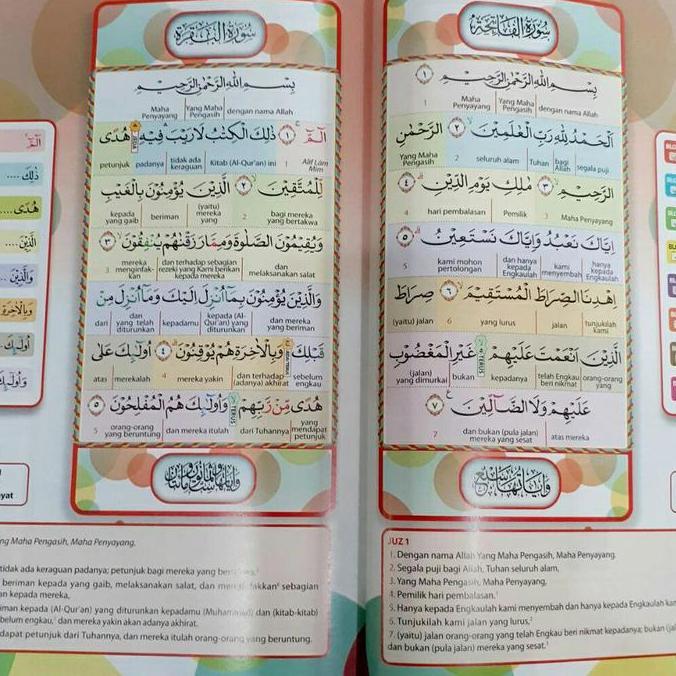 سُورَةُ الْفَاتِحَةِ
بِسْمِ اللّٰهِ الرَّحْمٰنِ الرَّحِيْمِ ١
dengan nama Allah Yang Maha Pengasih Maha Penyayang 1
اَلْحَمْدُ لِلّٰهِ رَبِّ الْعٰلَمِيْنَ ٢ الرَّحْمٰنِ
segala puji bagi Allah Tuhan seluruh alam 2 Yang Maha Pengasih
الرَّحِيْمِ ٣ مٰلِكِ يَوْمِ الدِّيْنِ ٤
Maha Penyayang 3 Pemilik hari pembalasan 4
اِيَّاكَ نَعْبُدُ وَاِيَّاكَ نَسْتَعِيْنُ ٥
hanya kepada Engkaulah kami menyembah dan hanya kepada Engkaulah kami mohon pertolongan 5
اِهْدِنَا الصِّرَاطَ الْمُسْتَقِيْمَ ٦ صِرَاطَ
tunjukilah kami jalan yang lurus 6 (yaitu) jalan
الَّذِيْنَ اَنْعَمْتَ عَلَيْهِمْ غَيْرِ الْمَغْضُوْبِ
orang-orang yang telah Engkau beri nikmat kepadanya bukan (jalan) yang dimurkai
عَلَيْهِمْ وَلَا الضَّاۤلِّيْنَ ٧
atas mereka dan bukan (pula jalan) mereka yang sesat 7
JUZ 1
1. Dengan nama Allah Yang Maha Pengasih, Maha Penyayang.
2. Segala puji bagi Allah, Tuhan seluruh alam,
3. Yang Maha Pengasih, Maha Penyayang,
4. Pemilik hari pembalasan.¹
5. Hanya kepada Engkaulah kami menyembah dan hanya kepada Engkaulah
6. Tunjukilah kami jalan yang lurus,²
7. (yaitu) jalan orang-orang yang telah Engkau beri nikmat kepadanya; bukan
dan bukan (pula jalan) mereka yang sesat.³
سُورَةُ الْبَقَرَةِ
بِسْمِ اللّٰهِ الرَّحْمٰنِ الرَّحِيْمِ
dengan nama Allah Yang Maha Pengasih Maha Penyayang
الۤمّۤ ١ ذٰلِكَ الْكِتٰبُ لَا رَيْبَ فِيْهِ هُدًى
Alif Lam Mim 1 Kitab (Al-Qur'an) ini tidak ada keraguan padanya petunjuk
لِّلْمُتَّقِيْنَ ٢ الَّذِيْنَ يُؤْمِنُوْنَ بِالْغَيْبِ
bagi mereka yang bertakwa 2 (yaitu) mereka yang beriman kepada yang gaib
وَيُقِيْمُوْنَ الصَّلٰوةَ وَمِمَّا رَزَقْنٰهُمْ يُنْفِقُوْنَ ٣
dan melaksanakan salat dan terhadap sebagian rezeki yang Kami berikan kepada mereka mereka menginfak-kan 3
وَالَّذِيْنَ يُؤْمِنُوْنَ بِمَآ اُنْزِلَ اِلَيْكَ وَمَآ اُنْزِلَ مِنْ
dan mereka yang beriman kepada (Al-Qur'an) yang diturunkan kepadamu dan yang telah diturunkan dari
قَبْلِكَ وَبِالْاٰخِرَةِ هُمْ يُوْقِنُوْنَ ٤ اُولٰۤىِٕكَ عَلٰى
sebelum engkau dan terhadap (adanya) akhirat mereka yakin 4 merekalah atas
هُدًى مِّنْ رَّبِّهِمْ وَاُولٰۤىِٕكَ هُمُ الْمُفْلِحُوْنَ ٥
yang mendapat petunjuk dari Tuhannya dan mereka itulah orang-orang yang beruntung 5
الۤمّۤ
ذٰلِكَ ....
هُدًى....
الَّذِيْنَ ....
وَالَّذِيْنَ
وَبِالْاٰخِرَةِ
اُولٰۤىِٕكَ
ng Maha Pengasih, Maha Penyayang.
tidak ada keraguan padanya; petunjuk bagi mereka yang
beriman kepada yang gaib, melaksanakan salat, dan sebagian
an kepada mereka,
iman kepada (Al-Qur'an) yang diturunkan kepadamu (Muhammad) dan (kitab-kitab)
belum engkau, dan mereka yakin akan adanya akhirat.
dapat petunjuk dari Tuhannya, dan mereka itulah orang-orang yang beruntung.